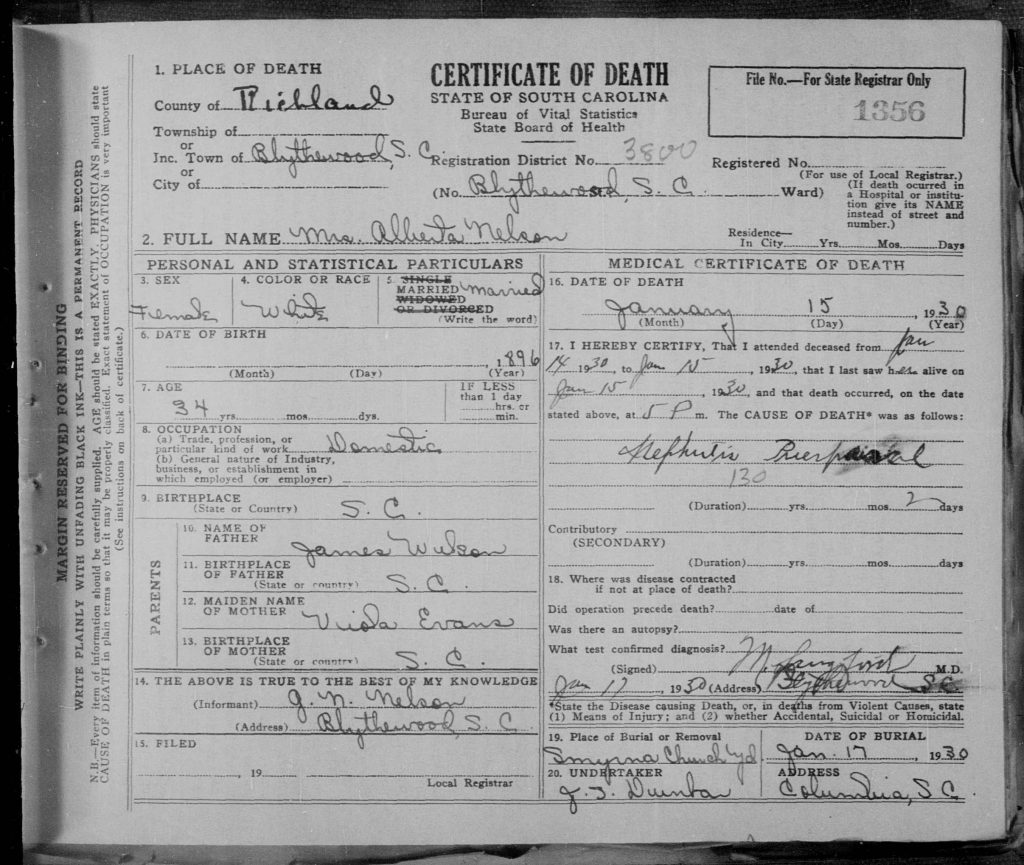 MARGIN RESERVED FOR BINDING
WRITE PLAINLY WITH UNFADING BLACK INK—THIS IS A PERMANENT RECORD
N.B.—Every item of information should be carefully supplied. AGE should be stated EXACTLY. PHYSICIANS should state
CAUSE OF DEATH in plain terms so that it may be properly classified. Exact statement of OCCUPATION is very important
(See instructions on back of certificate.)
1. PLACE OF DEATH
County of Richland
Township of
or
Inc. Town of Blythewood, S. C.
or
City of
CERTIFICATE OF DEATH
STATE OF SOUTH CAROLINA
Bureau of Vital Statistics
State Board of Health
Registration District No. 3800
(No. Blythewood, S. C. Ward)
File No.—For State Registrar Only
1356
Registered No.
(For use of Local Registrar.)
(If death ocurred in
a Hospital or institu-
tion give its NAME
instead of street and
number.)
2. FULL NAME Mrs. Alberta Nelson
Residence—
In City Yrs. Mos. Days
PERSONAL AND STATISTICAL PARTICULARS
3. SEX
Female
4. COLOR OR RACE
White
5. SINGLE
MARRIED Married
WIDOWED
OR DIVORCED
(Write the word)
6. DATE OF BIRTH
1896
(Month) (Day) (Year)
7. AGE
34 yrs. mos. dys.
IF LESS
than 1 day
hrs. or
min.
8. OCCUPATION
(a) Trade, profession, or
particular kind of work Domestic
(b) General nature of Industry,
business, or establishment in
which employed (or employer)
9. BIRTHPLACE
(State or Country) S. C.
PARENTS
10. NAME OF
FATHER James
11. BIRTHPLACE
OF FATHER
(State or country) S. C.
12. MAIDEN NAME
OF MOTHER Viola Evans
13. BIRTHPLACE
OF MOTHER
(State or country) S. C.
14. THE ABOVE IS TRUE TO THE BEST OF MY KNOWLEDGE
(Informant) G. N. Nelson
(Address) Blythewood, S. C
15. FILED
, 19
Local Registrar
MEDICAL CERTIFICATE OF DEATH
16. DATE OF DEATH
January 15 1930
(Month) (Day) (Year)
17. I HEREBY CERTIFY, That I attended deceased from Jan
14 1930, to Jan 15, 1930, that I last saw her alive on
Jan 15, 1930, and that death occurred, on the date
stated above, at 5 P m. The CAUSE OF DEATH* was as follows:
130
(Duration) yrs. mos. 2 days
Contributory
(SECONDARY)
(Duration) yrs. mos. days
18. Where was disease contracted
if not at place of death?
Did operation precede death? date of
Was there an autopsy?
What test confirmed diagnosis?
(Signed) M. Langford M.D.
Jan 17, 1930 (Address) Blythewood S.C.
*State the Disease causing Death, or, in deaths from Violent Causes, state
(1) Means of Injury; and (2) whether Accidental, Suicidal or Homicidal.
19. Place of Burial or Removal
Smyrna Church yd
DATE OF BURIAL
Jan. 17 1930
20. UNDERTAKER
ADDRESS
Columbia, S. C